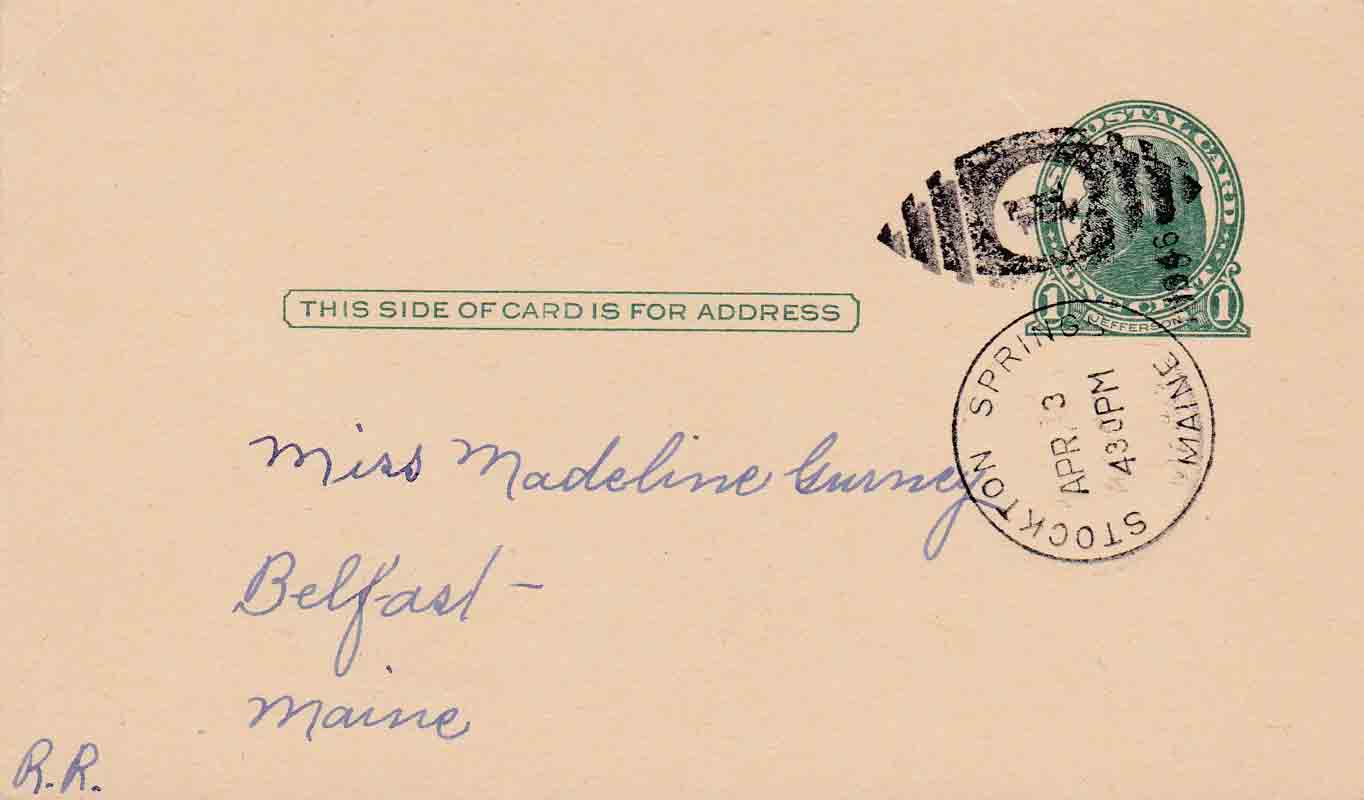 POSTAL CARD
1 JEFFERSON 1
THIS SIDE OF CARD IS FOR ADDRESS
STOCKTON SPRINGS
APR 3
430PM
MAINE
Miss Madeline Gurney
Belfast -
Maine
R.R.